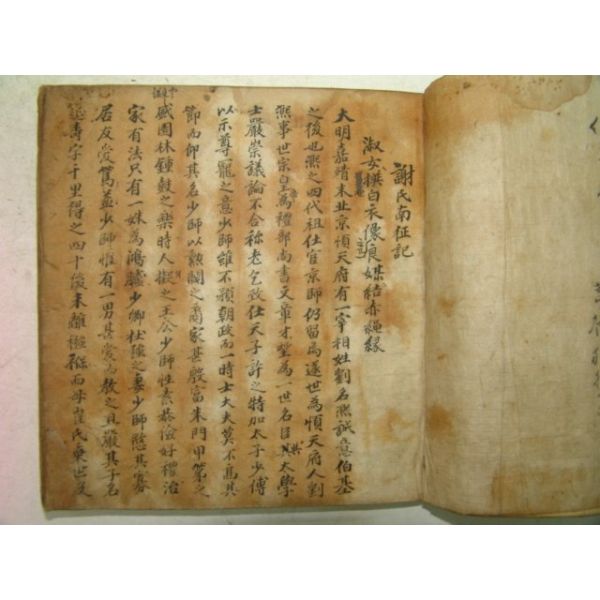 謝氏南征記
淑女撰白衣像 媒結赤繩緣
大明嘉靖末北京順天府有一宰相姓劉名熙誠意伯基
之後也熙之四代祖仕官京師仍留焉遂世為順天府人劉
熙事世宗皇 為禮部尚書文章才望為一世名臣 與太學
士嚴崇議論不合称老乞致仕天子許之特加太子少傅
以示尊寵之意少師雖不預朝政而一時士大夫莫不高其
節而仰其名少師以勳閥之 家甚殷富朱門甲第之
盛園林鍾鼓之樂時人擬之王公少師性素恭儉好禮治
家有法只有一妹為鴻臚少卿杜强之妻少師愍其寡
居友愛篤益少師惟有一男甚愛而教之且嚴其子名
延壽字千里得之四十後未離襁褓而母崔氏棄世